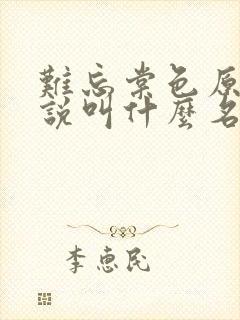 難忘棠色原
說叫什麼名
李惠民